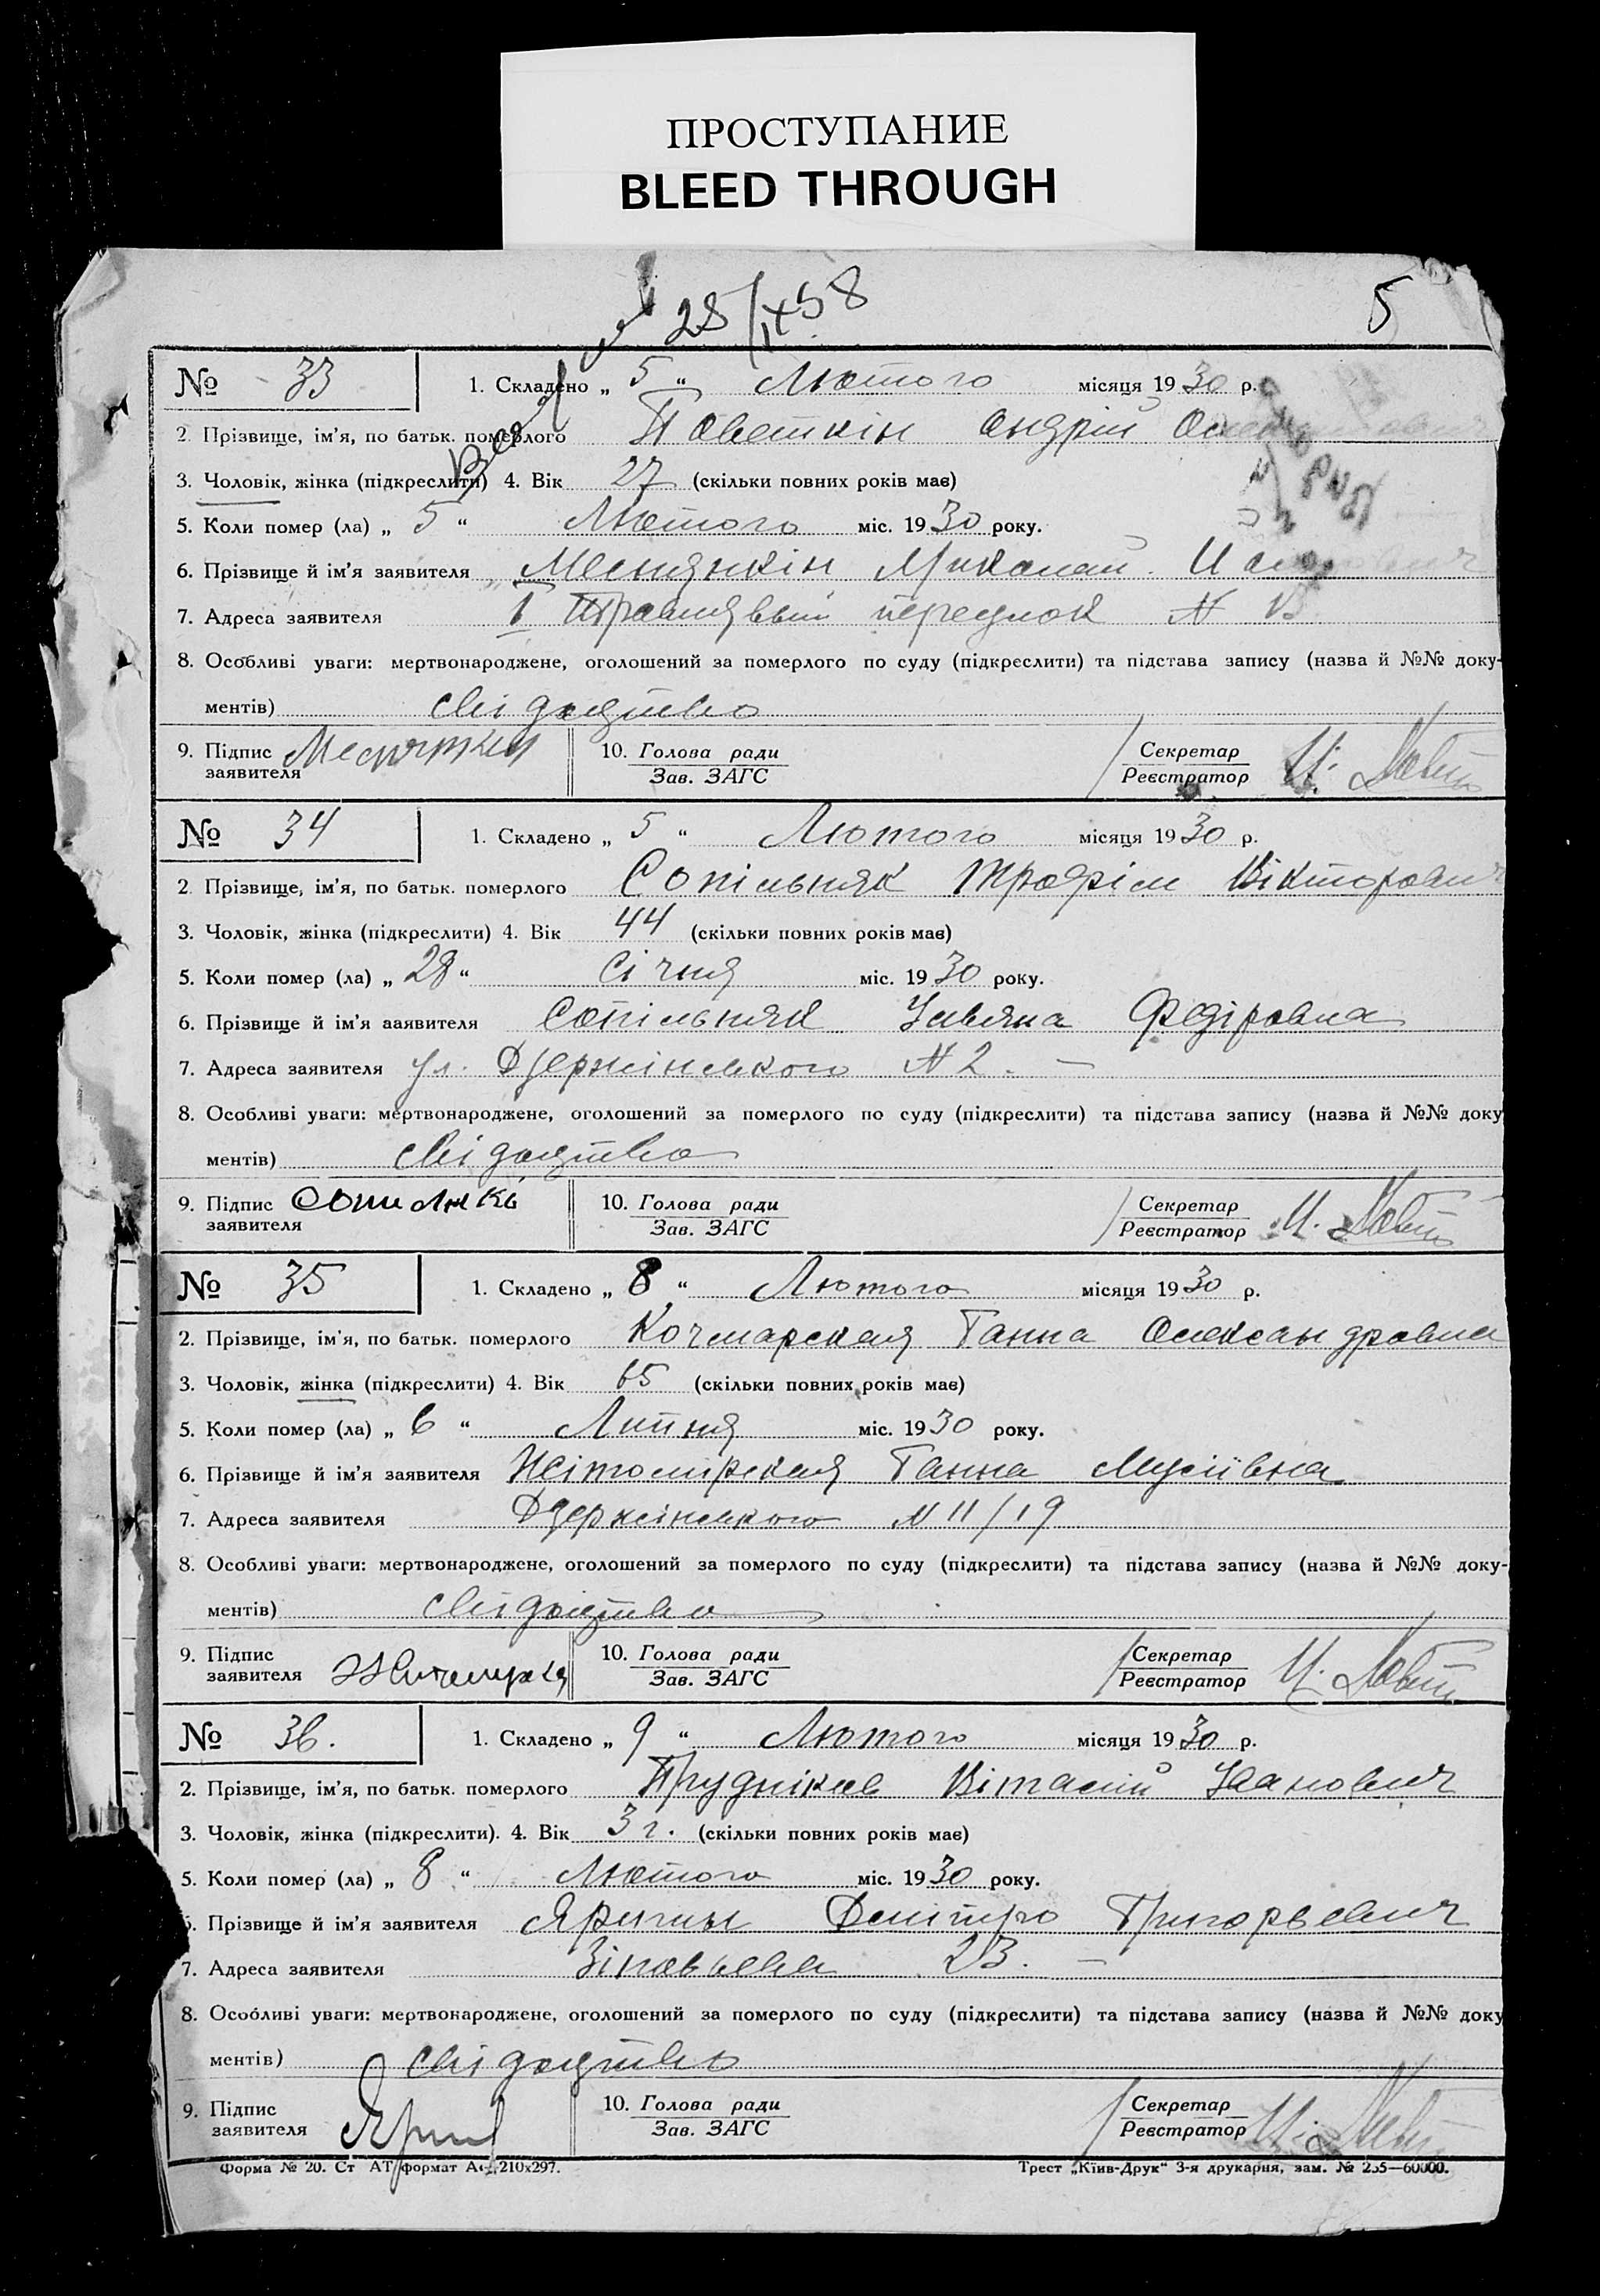 ПРОСТУПАНИЕ
BLEED THROUGH
28/IX58
5
№ 33 1. Складено „ 5 “ Лютого місяця 1930 р.
2. Прізвище, ім'я, по батьк. померлого Поветкін Андрій
3. Чоловік, жінка (підкреслити) 4. Вік 27 (скільки повних років має)
5. Коли помер (ла) „ 5 “ Лютого міс. 1930 року.
6. Прізвище й ім'я заявителя Миколай
7. Адреса заявителя I переулок N
8. Особливі уваги: мертвонароджене, оголошений за померлого по суду (підкреслити) та підстава запису (назва й №№ доку-
ментів) свідоцтво
9. Підпис заявителя 10. Голова ради Секретар
Зав. ЗАГС Реєстратор
№ 34 1. Складено „ 5 “ Лютого місяця 1930 р.
2. Прізвище, ім'я, по батьк. померлого Сопільняк Трофім Вікторович
3. Чоловік, жінка (підкреслити) 4. Вік 44 (скільки повних років має)
5. Коли помер (ла) „ 28 “ Січня міс. 1930 року.
6. Прізвище й ім'я аявителя Сопільняк Ульяна Федіровна
7. Адреса заявителя ул. Дзержінського N 2. —
8. Особливі уваги: мертвонароджене, оголошений за померлого по суду (підкреслити) та підстава запису (назва й №№ доку
ментів) свідоцтво
9. Підпис заявителя 10. Голова ради Секретар
Зав. ЗАГС Реєстратор
№ 35 1. Складено „ 8 “ Лютого місяця 1930 р.
2. Прізвище, ім'я, по батьк. померлого Кочмарская Ганна Олександровна
3. Чоловік, жінка (підкреслити) 4. Вік 65 (скільки повних років має)
5. Коли помер (ла) „ 6 “ Липня міс. 1930 року.
6. Прізвище й ім'я заявителя Жітомірская Ганна Мусіївна
7. Адреса заявителя Дзержінського N 11/19
8. Особливі уваги: мертвонароджене, оголошений за померлого по суду (підкреслити) та підстава запису (назва й №№ доку-
ментів) свідоцтво
9. Підпис заявителя 10. Голова ради Секретар
Зав. ЗАГС Реєстратор
№ 36. 1. Складено „ 9 “ Лютого місяця 1930 р.
2. Прізвище, ім'я, по батьк. померлого Прудніков Віталій Іванович
3. Чоловік, жінка (підкреслити). 4. Вік 3 г. (скільки повних років має)
5. Коли помер (ла) „ 8 “ Лютого міс. 1930 року.
6. Прізвище й ім'я заявителя Дмітро Григорьевич
7. Адреса заявителя Зіновьева 23. —
8. Особливі уваги: мертвонароджене, оголошений за померлого по суду (підкреслити) та підстава запису (назва й №№ доку
ментів) свідоцтво
9. Підпис заявителя 10. Голова ради Секретар
Зав. ЗАГС Реєстратор
Форма № 20. Ст АТ формат А4 210x297. Трест „Київ-Друк“ 3-я друкарня, зам. № 255—60000.